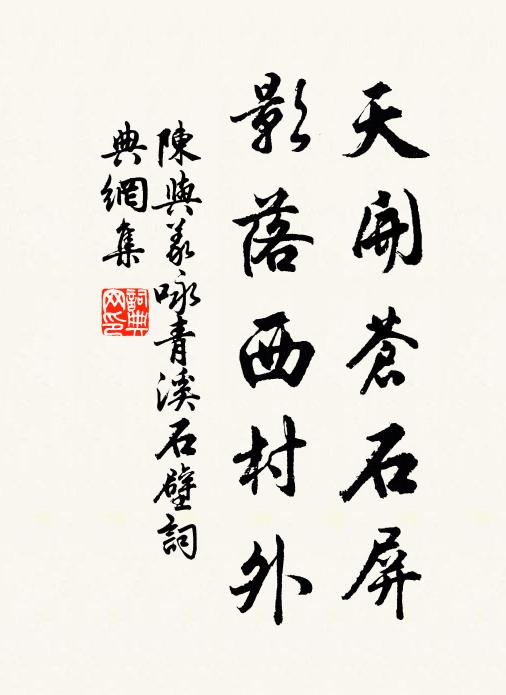 天開蒼石屏
影落西村外
陳與義詠青溪石壁詞
典網集
詞典網印